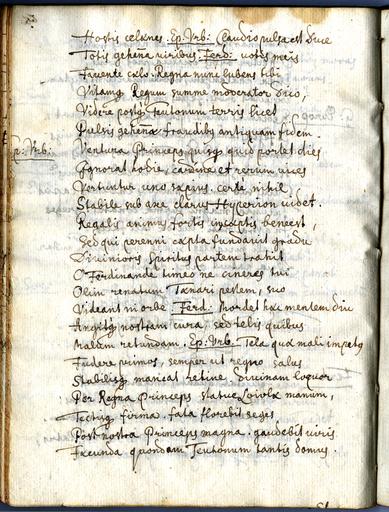 Hostis celsnes. Ep: Urb: Claudio pulsa est Duce
Totis gehena viribus. Ferd: votis meis
Favente cælo. Regna nunc lubens tibi
Vitamq Regum summe moderator dico,
Videre postq Teutonum terris licet
Pulsis gehena fraudibus antiquam fidem.
Ep: Urb:
Ventura Princeps quisq quid portet dies
Ignorat hodie, cardine et rerum vices
Vertuntur uno sæpius. certe nihil
Stabile sub axe clarus Hyperion videt.
Regalis animus fortis inceptis beneest,
Sed qui perenni cæpta fundavit gradu
Divinioris Spiritus partem trahit
O Ferdinande timeo ne cineres tui
Olim renatum Tænari pestem, suo
Videant in orbe. Ferd: Mordet hæc mentem diu
Angitq nostram cura, sed telis quibus
Malum retundam. Ep: Urb: Tela quæ mali impetq
Fudere primos, semper ut regno salus
Stabilisq maneat retine. Divinam loquor
Per Regna Princeps statue Loiolæ manum,
Tectisq firma. fata florebit seges
Post nostra Princeps magna. gaudebit viris
Fæcunda quondam Teutonum tantis domus.